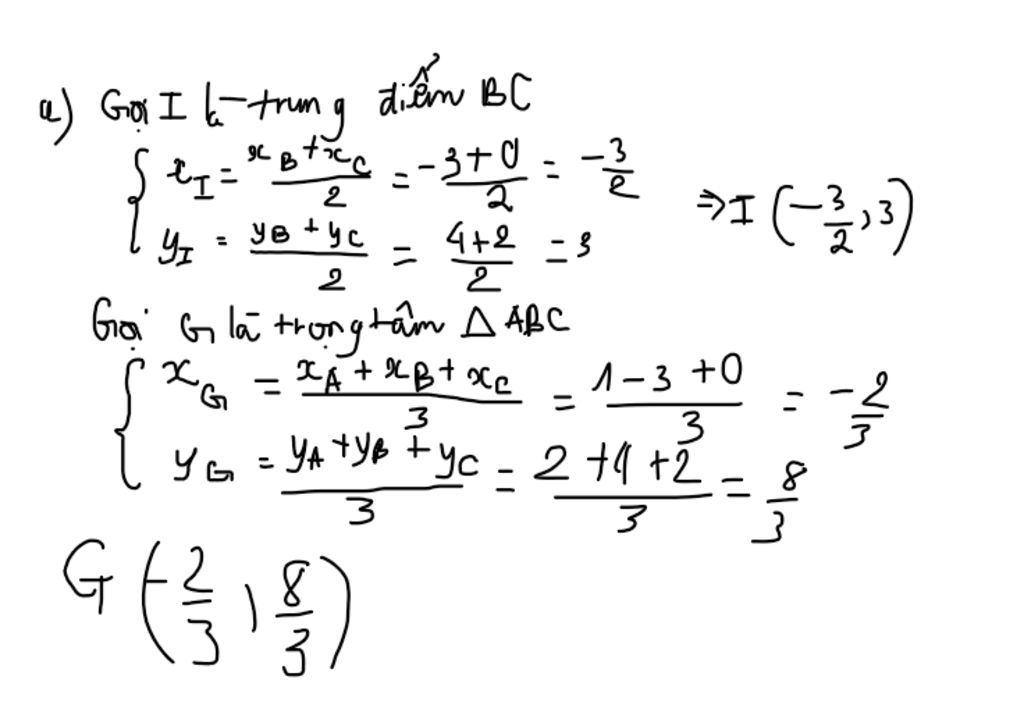 a) Gọi I là trung điểm BC
{ x_I = (x_B + x_C)/2 = (-3+0)/2 = -3/2
⇒ I (-3/2, 3)
y_I = (y_B + y_C)/2 = (4+2)/2 = 3
Gọi G là trọng tâm △ ABC
{ x_G = (x_A + x_B + x_C)/3 = (1-3+0)/3 = -2/3
y_G = (y_A + y_B + y_C)/3 = (2+4+2)/3 = 8/3
G (-2/3, 8/3)